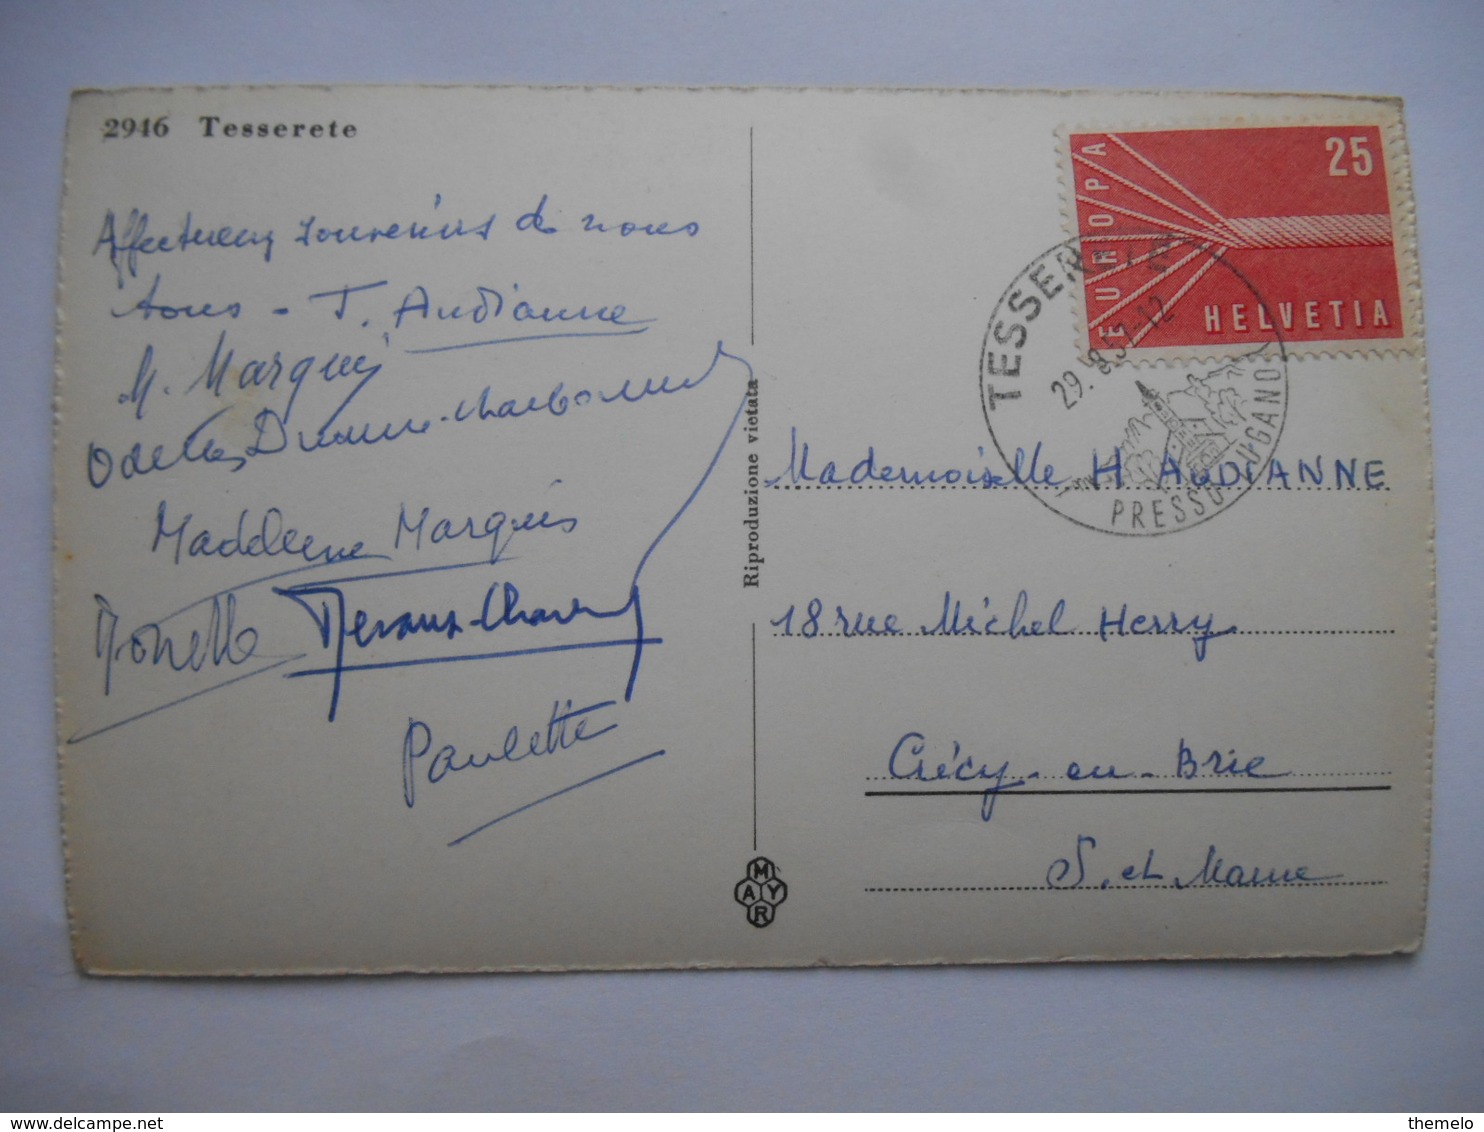 2946 Tesserete
Affectueux souvenirs de nous
tous - T. Audianne
M. Marquis
Odette
Madeleine Marquis
Monette
Paulette
Riproduzione vietata
MAYR
EUROPA
25
HELVETIA
TESSERETE
29.8.57-12
PRESSO LUGANO
Mademoiselle H AUDIANNE
18 rue Michel Herry
Crécy-en-Brie
S. et Marne
delcampe.net
themelo